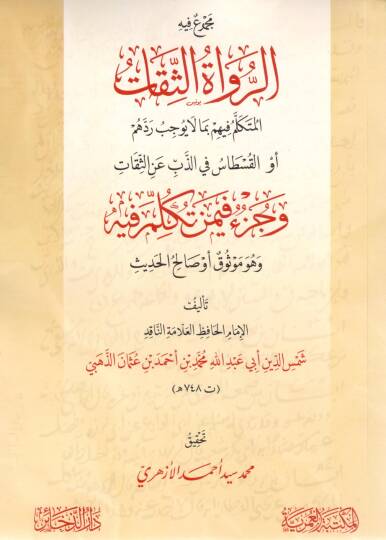 مَجْمُوعٌ فِيهِ
الرُّوَاةُ الثِّقَاتُ
المُتَكَلَّمُ فِيهِمْ بِمَا لَا يُوجِبُ رَدَّهُمْ
أَوْ القُسْطَاسُ فِي الذَّبِّ عَنِ الثِّقَاتِ
وَجُزْءٌ فِيمَنْ تُكُلِّمَ فِيهِ
وَهُوَ مَوْثُوقٌ أَوْ صَالِحُ الحَدِيثِ
تَأْلِيفُ
الإِمَامِ الحَافِظِ العَلَّامَةِ النَّاقِدِ
شَمْسِ الدِّينِ أَبِي عَبْدِ اللهِ مُحَمَّدِ بْنِ أَحْمَدَ بْنِ عُثْمَانَ الذَّهَبِيِّ
(ت ٧٤٨ هـ)
تَحْقِيقُ
محمد سيد أحمد الأزهري
المكتبة العمرية
دار الذخائر